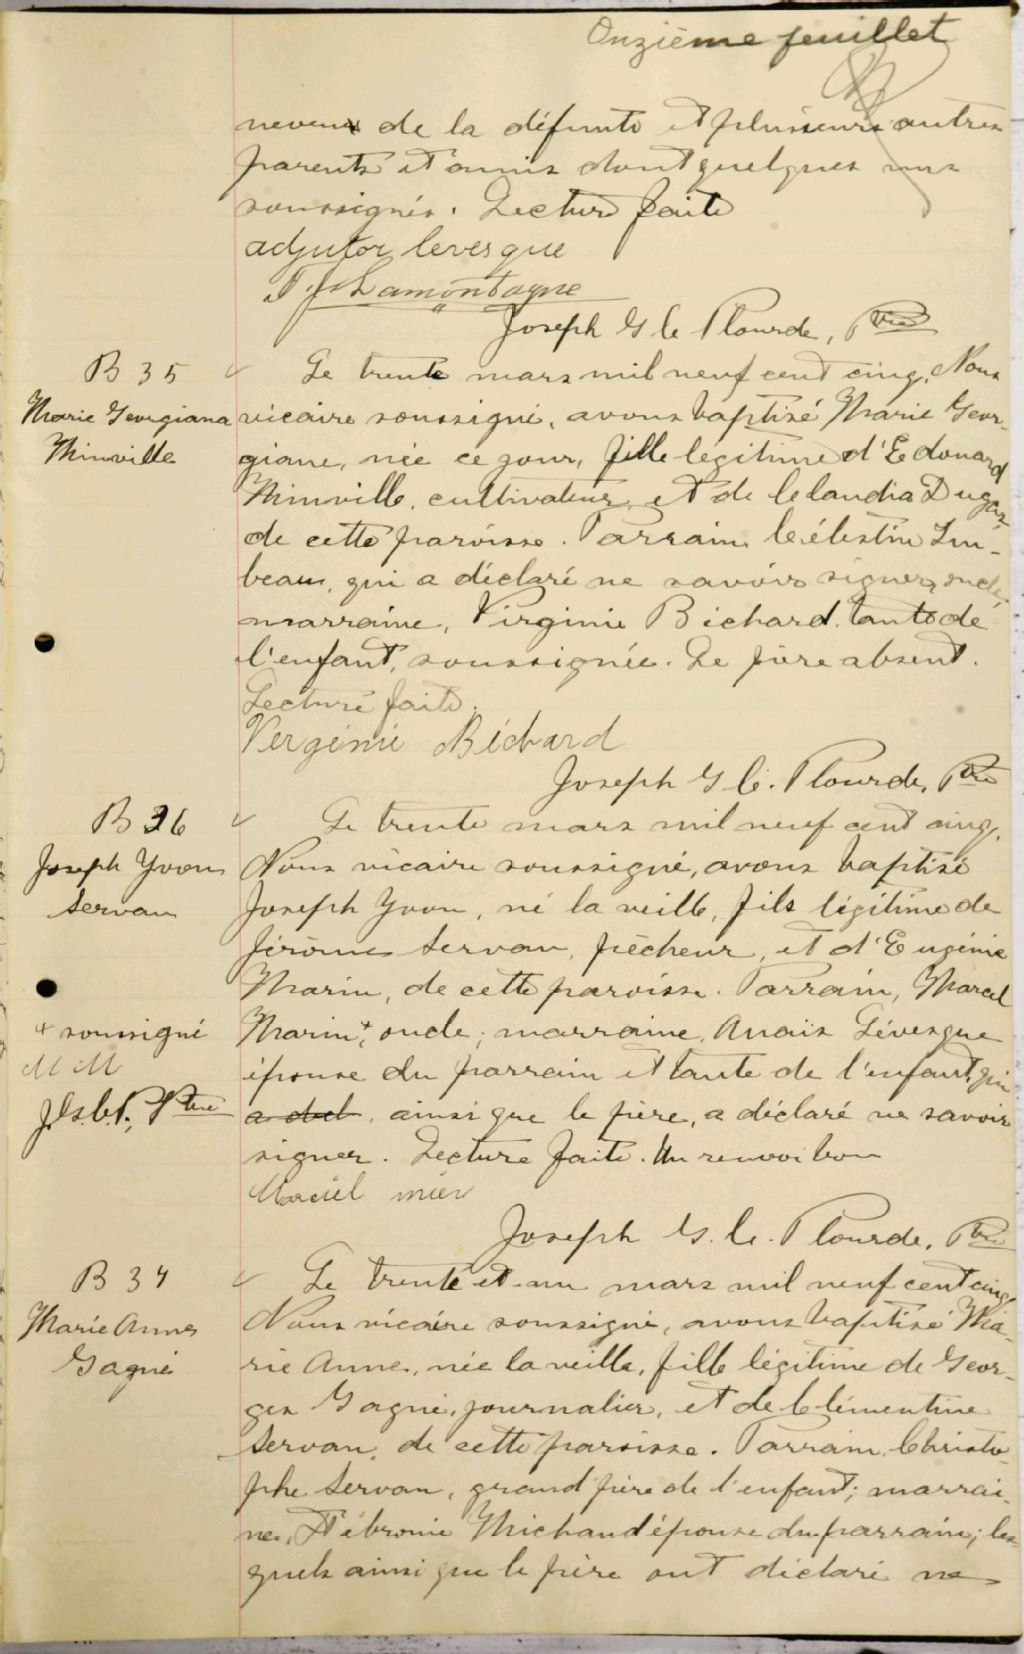 Onzième feuillet
neveux de la défunte et plusieurs autres
parents et amis dont quelques uns
soussignés. Lecture faite
adjutor levesque
Lamontagne
Joseph G C Plourde, Ptre
B 35
Marie Georgiana
Minville
Le trente mars mil neuf cent cinq, Nous
vicaire soussigné, avons baptisé Marie Geor-
giane, née ce jour, fille légitime d'Edouard
Minville, cultivateur, et de Claudia Dugas,
de cette paroisse. Parrain Célestin
beau, qui a déclaré ne savoir signer, oncle,
marraine, Virginie Bichard, tante de
l'enfant, soussignée. Le père absent.
Lecture faite.
Vergenie Bichard
Joseph G C. Plourde, Ptre
B 36
Joseph Yvon
Servan
Le trente mars mil neuf cent cinq,
Nous vicaire soussigné, avons baptisé
Joseph Yvon, né la veille, fils légitime de
Jérôme Servan, pêcheur, et d'Eugénie
Marin, de cette paroisse. Parrain, Marcel
Marin+, oncle; marraine, Anaïs Lévesque
épouse du parrain et tante de l'enfant, qui
a decl. ainsi que le père, a déclaré ne savoir
signer. Lecture faite. Un renvoi bon
+ soussigné
M M
J.G.C.P., Ptre
Joseph G. C. Plourde, Ptre
B 37
Marie Anne
Gagné
Le trente et un mars mil neuf cent cinq,
Nous vicaire soussigné, avons baptisé Ma-
rie Anne, née la veille, fille légitime de Geor-
ges Gagné, journalier, et de Clémentine
Servan, de cette paroisse. Parrain, Christo-
phe Servan, grand père de l'enfant; marrai-
ne, Fébronie Michaud épouse du parrain; les-
quels ainsi que le père ont déclaré ne